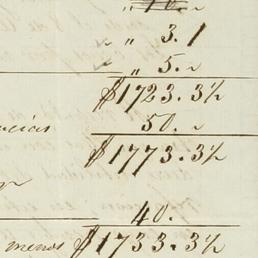 „ 10. „
„ „ 3. 1
„ „ 5. „
$1723. 3½
50. „
$1773. 3½
40.
menos $1733. 3½